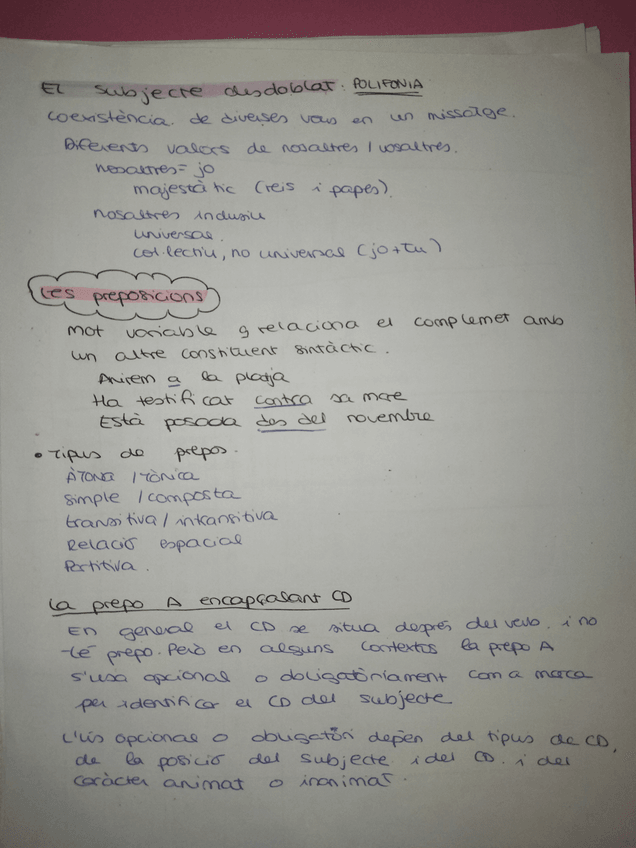 El subjecte desdoblat: POLIFONIA
Coexistència. de diverses veus en un missatge.
Diferents valors de nosaltres / vosaltres.
nosaltres = jo
majestàtic (reis i papes).
nosaltres inclusiu
universal.
col·lectiu, no universal (jo + tu)
Les preposicions
mot variable q relaciona el complemet amb
un altre constituent sintàctic.
Anirem a la platja
Ha testificat contra sa mare
Està posada des del novembre
• Tipus de prepos.
ÀTONA / TÒNICA
simple / composta
transitiva / intransitiva
Relació espacial
Partitiva.
La prepo A encapçalant CD
En general el CD se situa després del verb. i no
té prepo. Però en alguns contextos la prepo A
s'usa opcional o obligatòriament com a marca
per identificar el CD del subjecte
L'ús opcional o obligatòri depèn del tipus de CD,
de la posició del subjecte i del CD. i del
caràcter animat o inanimat.